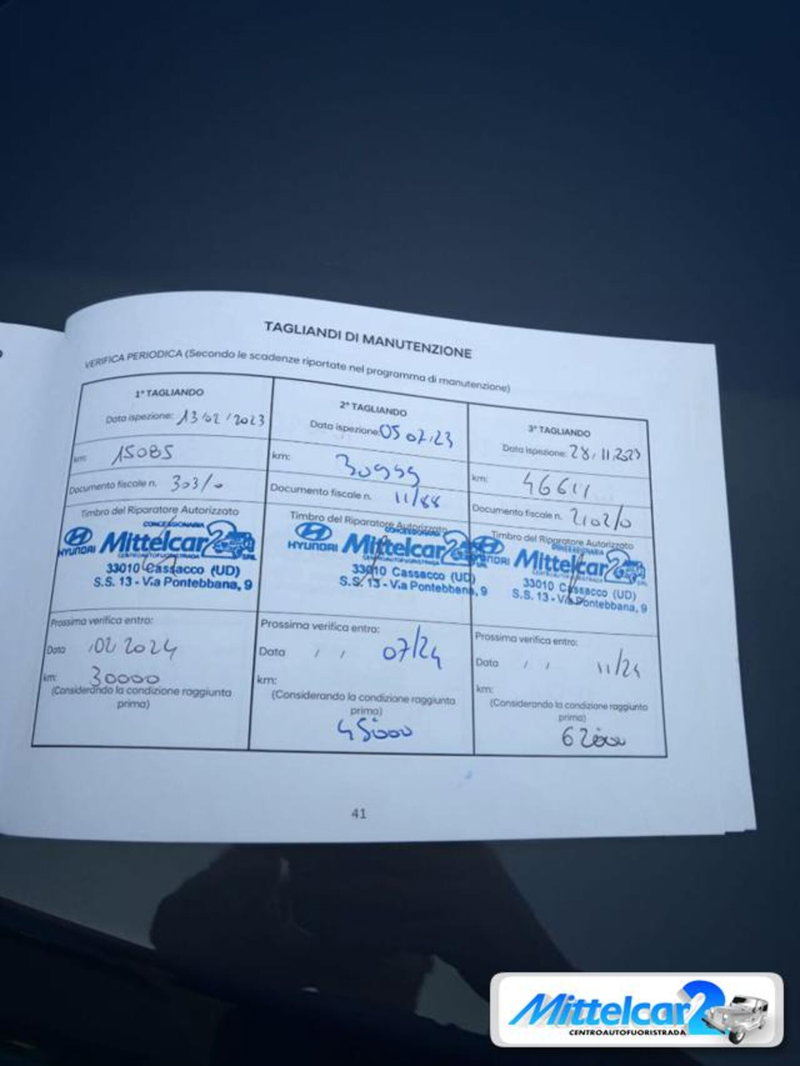 TAGLIANDI DI MANUTENZIONE
VERIFICA PERIODICA (Secondo le scadenze riportate nel programma di manutenzione)
1° TAGLIANDO
Data ispezione: 13/02/2023
km: 15085
Documento fiscale n. 303/0
Timbro del Riparatore Autorizzato
CONCESSIONARIA
HYUNDAI Mittelcar 2 SRL
CENTROAUTOFUORISTRADA
33010 Cassacco (UD)
S.S. 13 - Via Pontebbana, 9
Prossima verifica entro:
Data 02/2024
km: 30000
(Considerando la condizione raggiunta
prima)
2° TAGLIANDO
Data ispezione: 05 07/23
km: 30999
Documento fiscale n. 11/88
Timbro del Riparatore Autorizzato
CONCESSIONARIA
HYUNDAI Mittelcar 2
CENTROAUTOFUORISTRADA
33010 Cassacco (UD)
S.S. 13 - Via Pontebbana, 9
Prossima verifica entro:
Data / / 07/24
km:
(Considerando la condizione raggiunta
prima)
45000
3° TAGLIANDO
Data ispezione: 28/11/2023
km: 46611
Documento fiscale n. 2102/0
Timbro del Riparatore Autorizzato
CONCESSIONARIA
HYUNDAI Mittelcar 2 SRL
CENTROAUTOFUORISTRADA
33010 Cassacco (UD)
S.S. 13 - Via Pontebbana, 9
Prossima verifica entro:
Data / / 11/24
km:
(Considerando la condizione raggiunta
prima)
62000
41
Mittelcar 2
CENTROAUTOFUORISTRADA